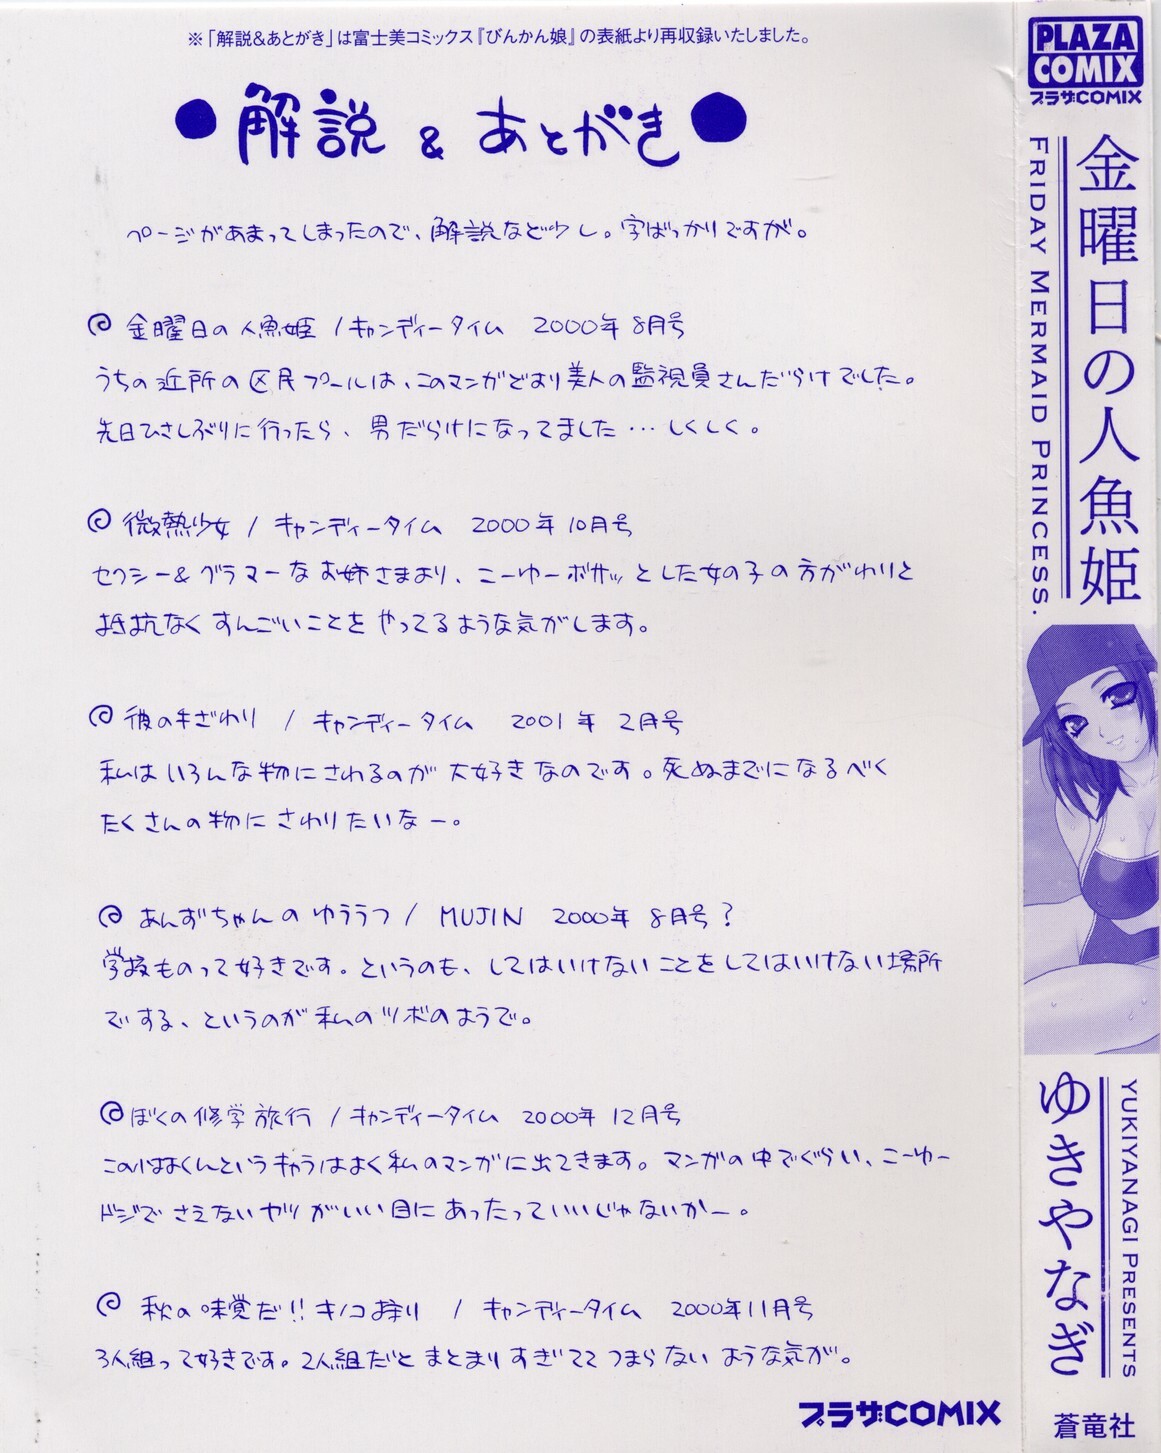 ※「解説&あとがき」は富士美コミックス『びんかん娘』の表紙より再収録いたしました。
●解説 & あとがき●
ページがあまってしまったので、解説など少し。字ばっかりですが。
金曜日の人魚姫 / キャンディータイム 2000年 8月号
うちの近所の区民プールは、このマンガどおり美人の監視員さんだらけでした。
先日ひさしぶりに行ったら、男だらけになってました…しくしく。
微熱少女 / キャンディータイム 2000年 10月号
セクシー&グラマーなお姉さまより、こーゆーボサッとした女の子の方がわりと
抵抗なくすんごいことをやってるような気がします。
彼の手ざわり / キャンディータイム 2001年 2月号
私はいろんな物にさわるのが大好きなのです。死ぬまでになるべく
たくさんの物にさわりたいなー。
あんずちゃんのゆううつ / MUJIN 2000年 8月号?
学校ものって好きです。というのも、してはいけないことをしてはいけない場所
でする、というのが私のツボのようで。
ぼくの修学旅行 / キャンディータイム 2000年 12月号
このくんというキャラはよく私のマンガに出てきます。マンガの中でぐらい、こーゆー
ドジでさえないヤツがいい目にあったっていいじゃないかー。
秋の味覚だ!!キノコ狩り / キャンディータイム 2000年11月号
3人組って好きです。2人組だとまとまりすぎててつまらないような気が。
プラザCOMIX
PLAZA
COMIX
プラザCOMIX
金曜日の人魚姫
FRIDAY MERMAID PRINCESS.
ゆきやなぎ
YUKIYANAGI PRESENTS
蒼竜社